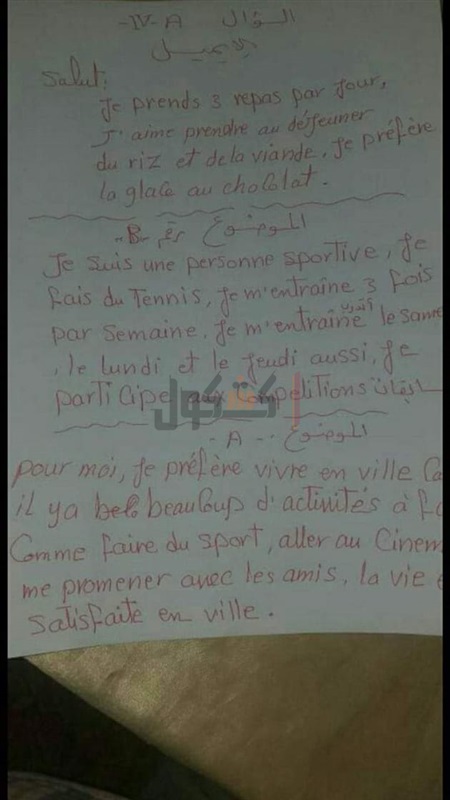 السؤال IV-A-
الإيميل
Salut!
Je prends 3 repas par Jour,
J'aime prendre au déjeuner
du riz et de la viande. Je préfère
la glace au chocolat.
الموضوع رقم B-
Je suis une personne sportive, Je
fais du Tennis, Je m'entraîne 3 fois
par semaine. Je m'entraîne le same
, le lundi et le jeudi aussi, Je
participe aux competitions
الموضوع - A -
Pour moi, Je préfère vivre en ville Ca
il y a beaucoup d'activités à fa
Comme faire du sport, aller au Cinem
me promener avec les amis, la vie e
satisfaite en ville.